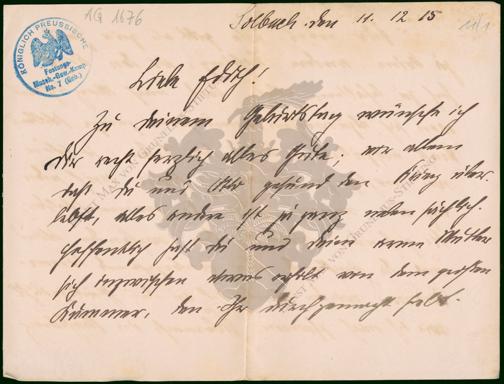 AG 1676
Solbach, den 11. 12. 15
11/1
KÖNIGLICH PREUSSISCHE
Festungs-
Masch.-Gew.-Komp.
No. 7
Liebe Edith!
Zu deinem Geburtstag wünsche ich
dir recht herzlich alles Gute; vor allem
daß du und Otto gesund den Krieg über-
lebst, alles andere ist ja ganz nebensächlich.
Hoffentlich hast du und deine arme Mutter
sich inzwischen etwas erholt von dem großen
Kummer, den Ihr durchgemacht habt.